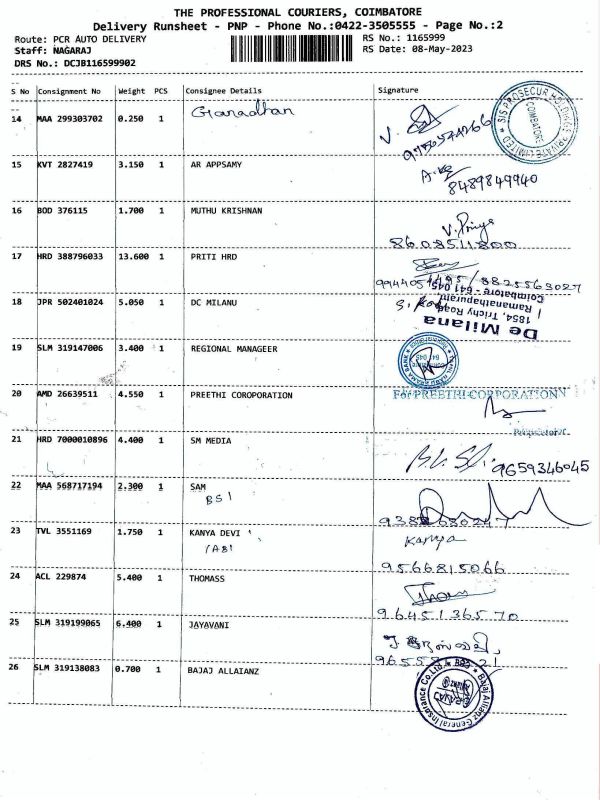 THE PROFESSIONAL COURIERS, COIMBATORE
Delivery Runsheet - PNP - Phone No.:0422-3505555 - Page No.:2
Route: PCR AUTO DELIVERY
RS No.: 1165999
Staff: NAGARAJ
RS Date: 08-May-2023
DRS No.: DCJB116599902
S No Consignment No Weight PCS Consignee Details Signature
14 MAA 299303702 0.250 1
SIS PROSEGUR HOLDINGS PRIVATE LIMITED COIMBATORE
15 KVT 2827419 3.150 1 AR APPSAMY
8489849940
16 BOD 376115 1.700 1 MUTHU KRISHNAN
V. Priya
8608511800
17 HRD 388796033 13.600 1 PRITI HRD
/8825563027
18 JPR 502401024 5.050 1 DC MILANU
De Milana
1854, Trichy Road,
Ramanathapuram
Coimbatore - 641 045
19 SLM 319147006 3.400 1 REGIONAL MANAGEER
20 AMD 26639511 4.550 1 PREETHI COROPORATION
For PREETHI CORPORATION
Proprietor
21 HRD 7000010896 4.400 1 SM MEDIA
9659346045
22 MAA 568717194 2.300 1 SAM
BSI
23 TVL 3551169 1.750 1 KANYA DEVI
Kanya
9566815066
24 ACL 229874 5.400 1 THOMASS
Thomas
9645136570
25 SLM 319199065 6.400 1 JAYAVANI
26 SLM 319138083 0.700 1 BAJAJ ALLAIANZ
Bajaj Allianz General Insurance Co. Ltd.